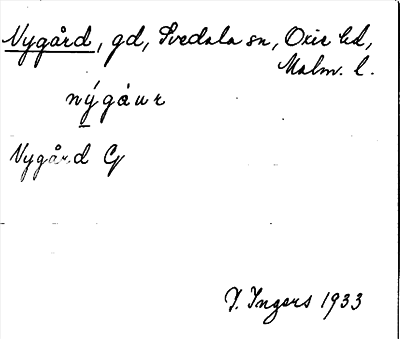 Nygård, gd, Svedala sn, Oxie hd,
Malm. l.
nýgáur
Nygård G
I. Ingers 1933